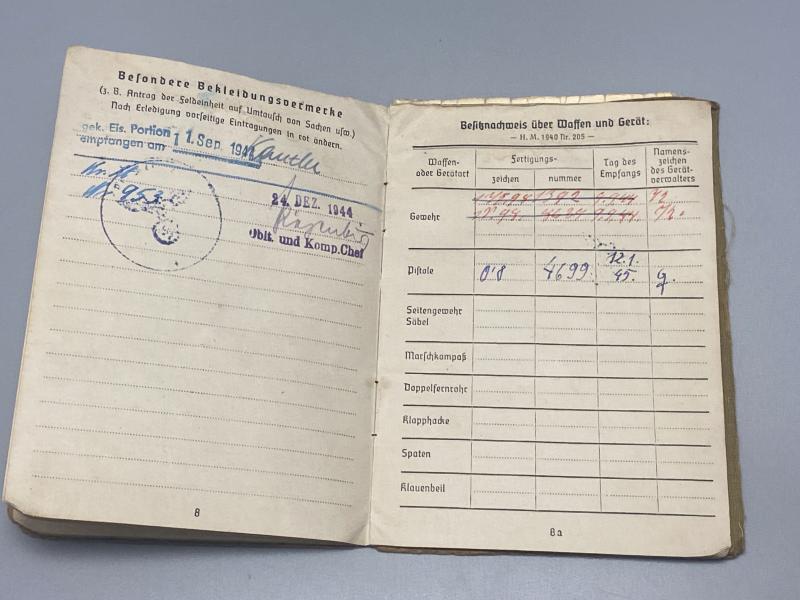 Besondere Bekleidungsvermerke
(z. B. Antrag der Feldeinheit auf Umtausch von Sachen usw.)
Nach Erledigung vorseitige Eintragungen in rot ändern.
gek. Eis. Portion
empfangen am
1 1. Sep. 194
953
24. DEZ. 1944
Oblt. und Komp.Chef
8
Besitznachweis über Waffen und Gerät:
— H. M. 1940 Nr. 205 —
Waffen- oder Geräteart
Fertigungs-
zeichen
nummer
Tag des Empfangs
Namens- zeichen des Gerät- verwalters
Gewehr
1392 9.9.44
98. 9.9.44.
Pistole 08 4699 12.1. 45.
Seitengewehr
Säbel
Marschkompaß
Doppelfernrohr
Klapphacke
Spaten
Klauenbeil
8a